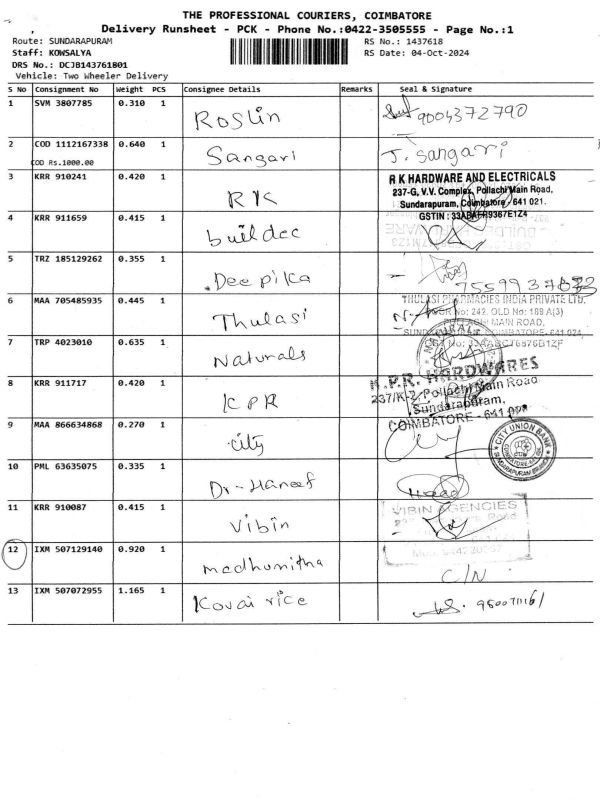 THE PROFESSIONAL COURIERS, COIMBATORE
Delivery Runsheet - PCK - Phone No.:0422-3505555 - Page No.:1
Route: SUNDARAPURAM
RS No.: 1437618
Staff: KOWSALYA
RS Date: 04-Oct-2024
DRS No.: DCJB143761801
Vehicle: Two Wheeler Delivery
S No Consignment No Weight PCS Consignee Details Remarks Seal & Signature
1 SVM 3807785 0.310 1 Roslin 9004372790
2 COD 1112167338 0.640 1 Sangari J. Sangari
COD Rs.1000.00
3 KRR 910241 0.420 1 RK
R K HARDWARE AND ELECTRICALS
237-G, V.V. Complex, Pollachi Main Road,
Sundarapuram, Coimbatore - 641 021.
GSTIN : 33ABAFR9367E1Z4
4 KRR 911659 0.415 1 buildec
5 TRZ 185129262 0.355 1 Deepika
6 MAA 705485935 0.445 1 Thulasi
THULASI PHARMACIES INDIA PRIVATE LTD.
No: 242, OLD No: 189 A(3)
MAIN ROAD,
7 TRP 4023010 0.635 1 Naturals
8 KRR 911717 0.420 1 KPR
K.P.R. HARDWARES
237/K-2, Pollachi Main Road
Sundarapuram,
COIMBATORE - 641
9 MAA 866634868 0.270 1 city
CITY UNION BANK
10 PML 63635075 0.335 1 Dr-Haneef
11 KRR 910087 0.415 1 Vibin
VIBIN AGENCIES
12 IXM 507129140 0.920 1 madhumitha C/N
13 IXM 507072955 1.165 1 Kovai rice